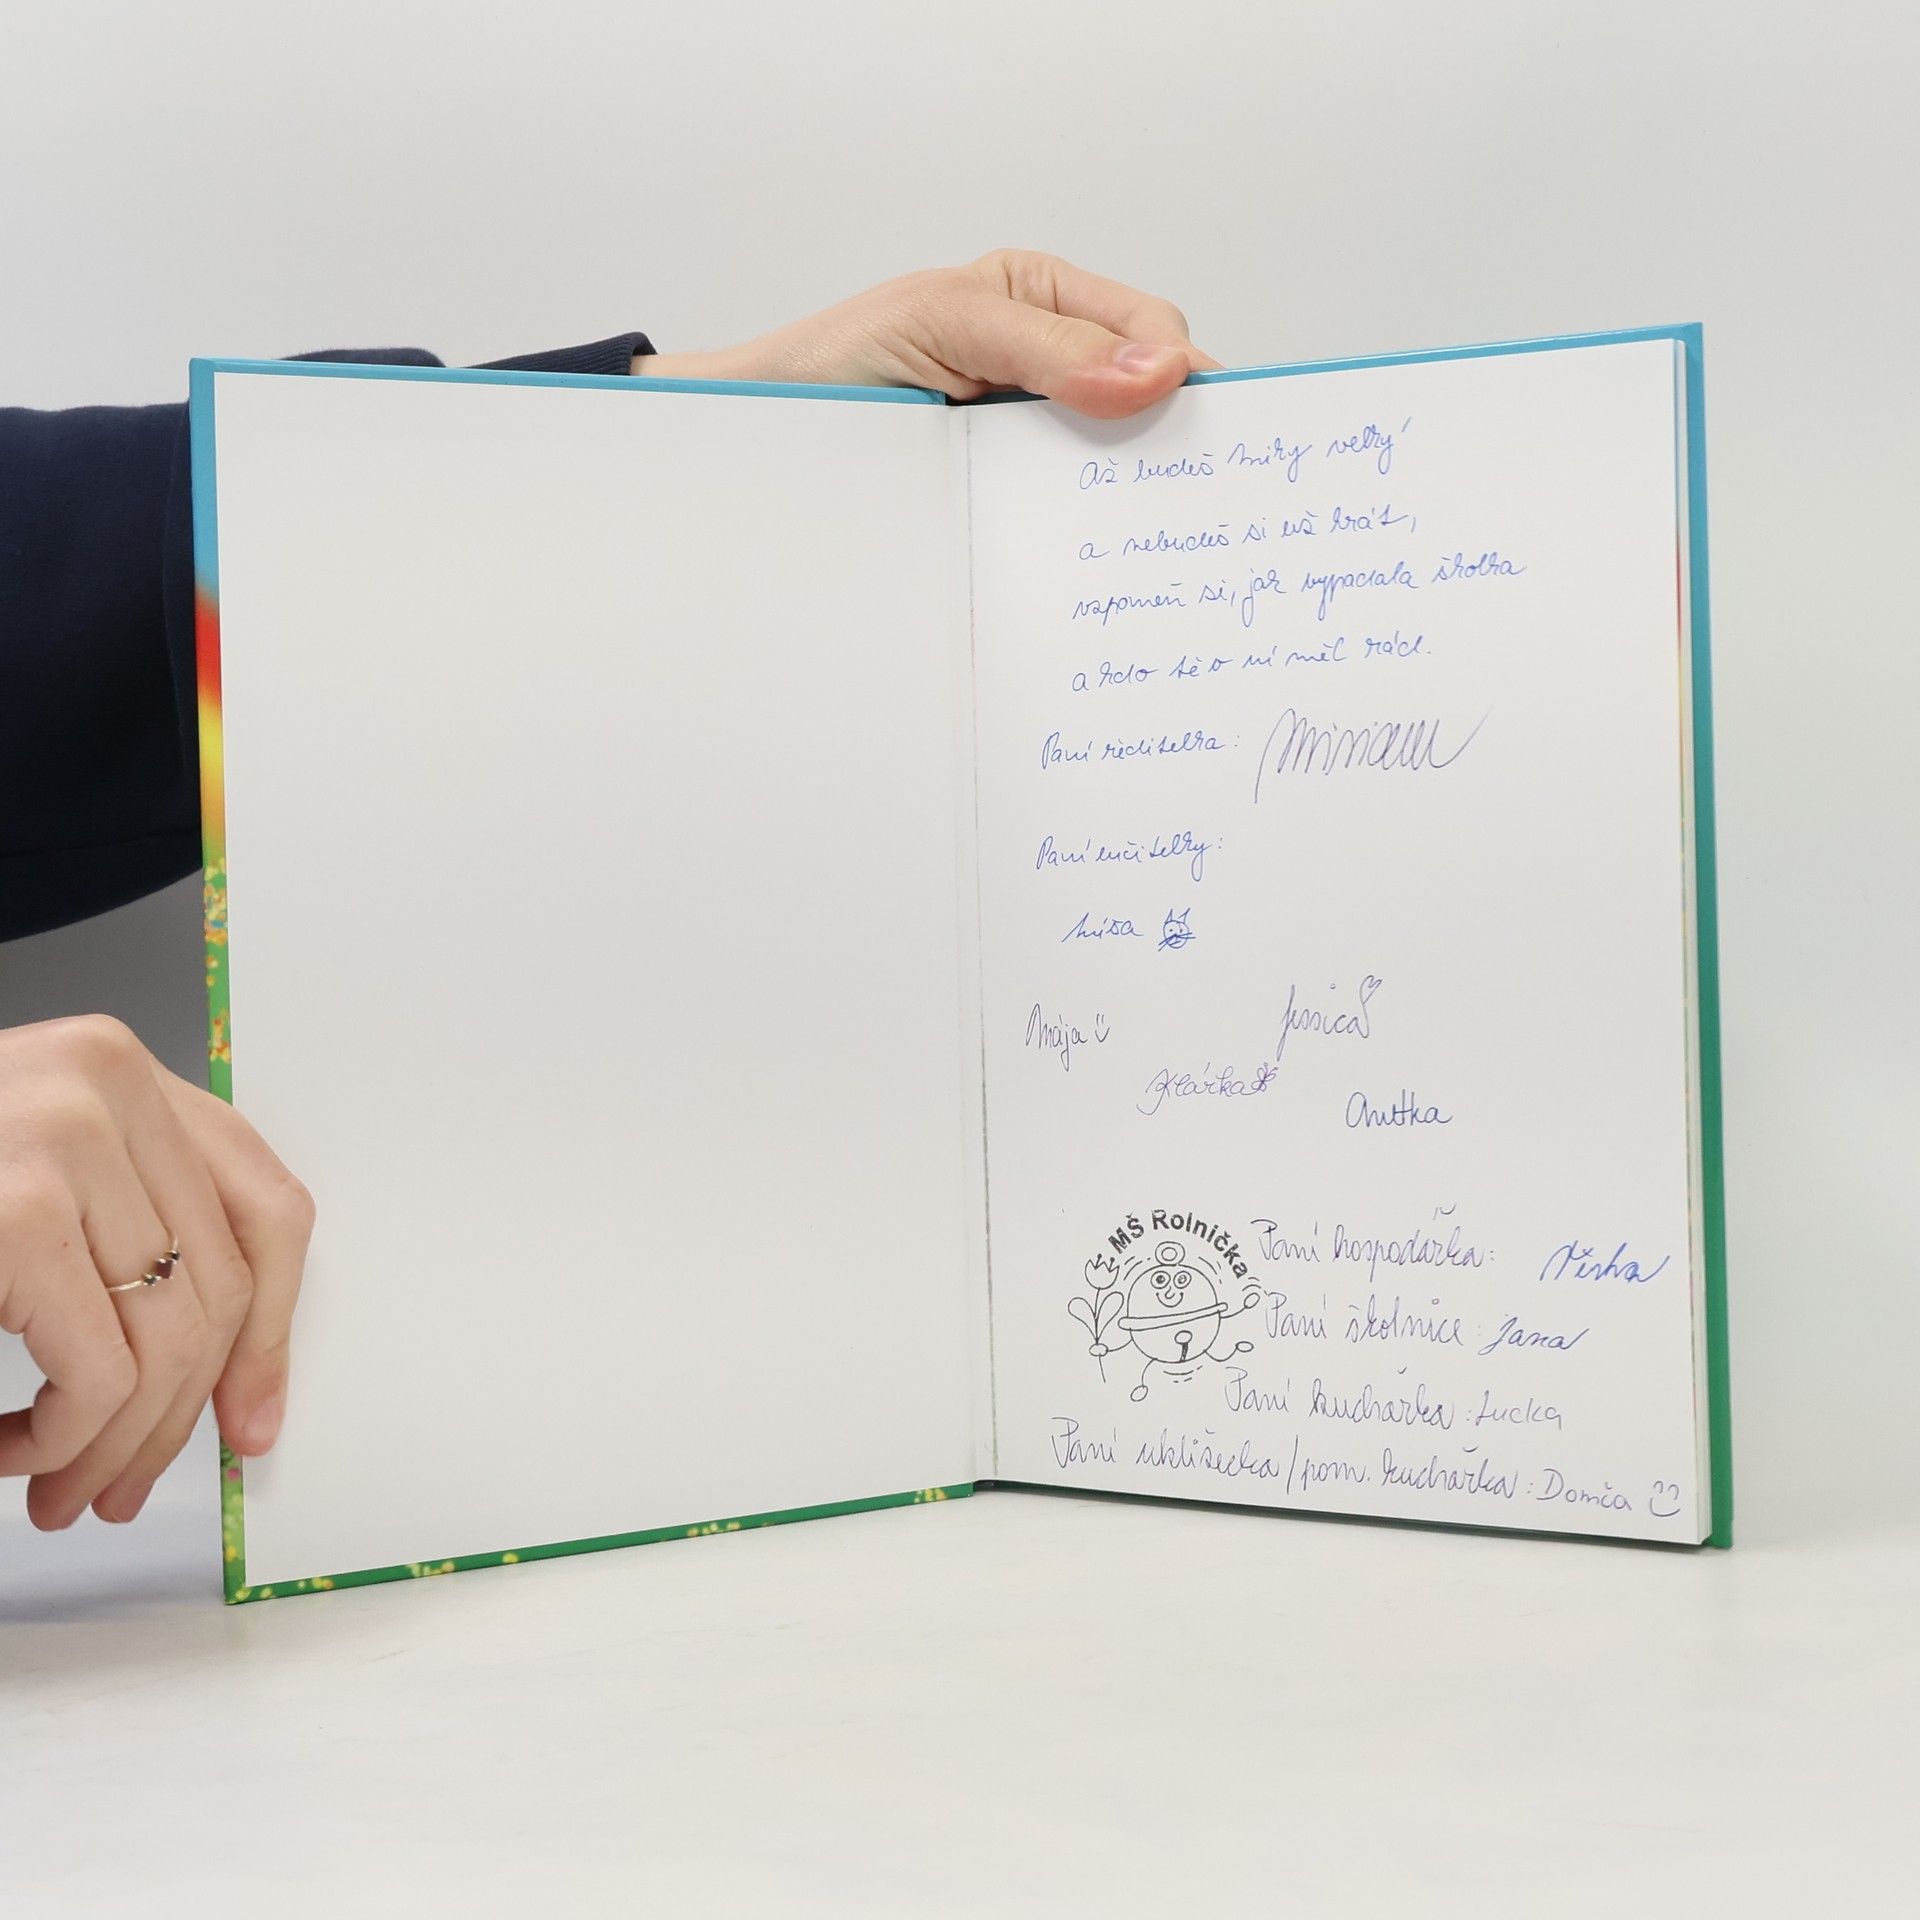 Až budeš tinky velký
a nebudeš si už hrát,
vzpomeň si, jak vypadala školka
a kdo tě v ní měl rád.
Paní ředitelka: Miriam
Paní učitelky:
Míša
Mája
Jessica
Klárka
Anetka
MŠ Rolnička
Paní hospodářka: Věrka
Paní školnice: Jana
Paní kuchařka: Lucka
Paní uklízečka/pom. kuchařka: Domča